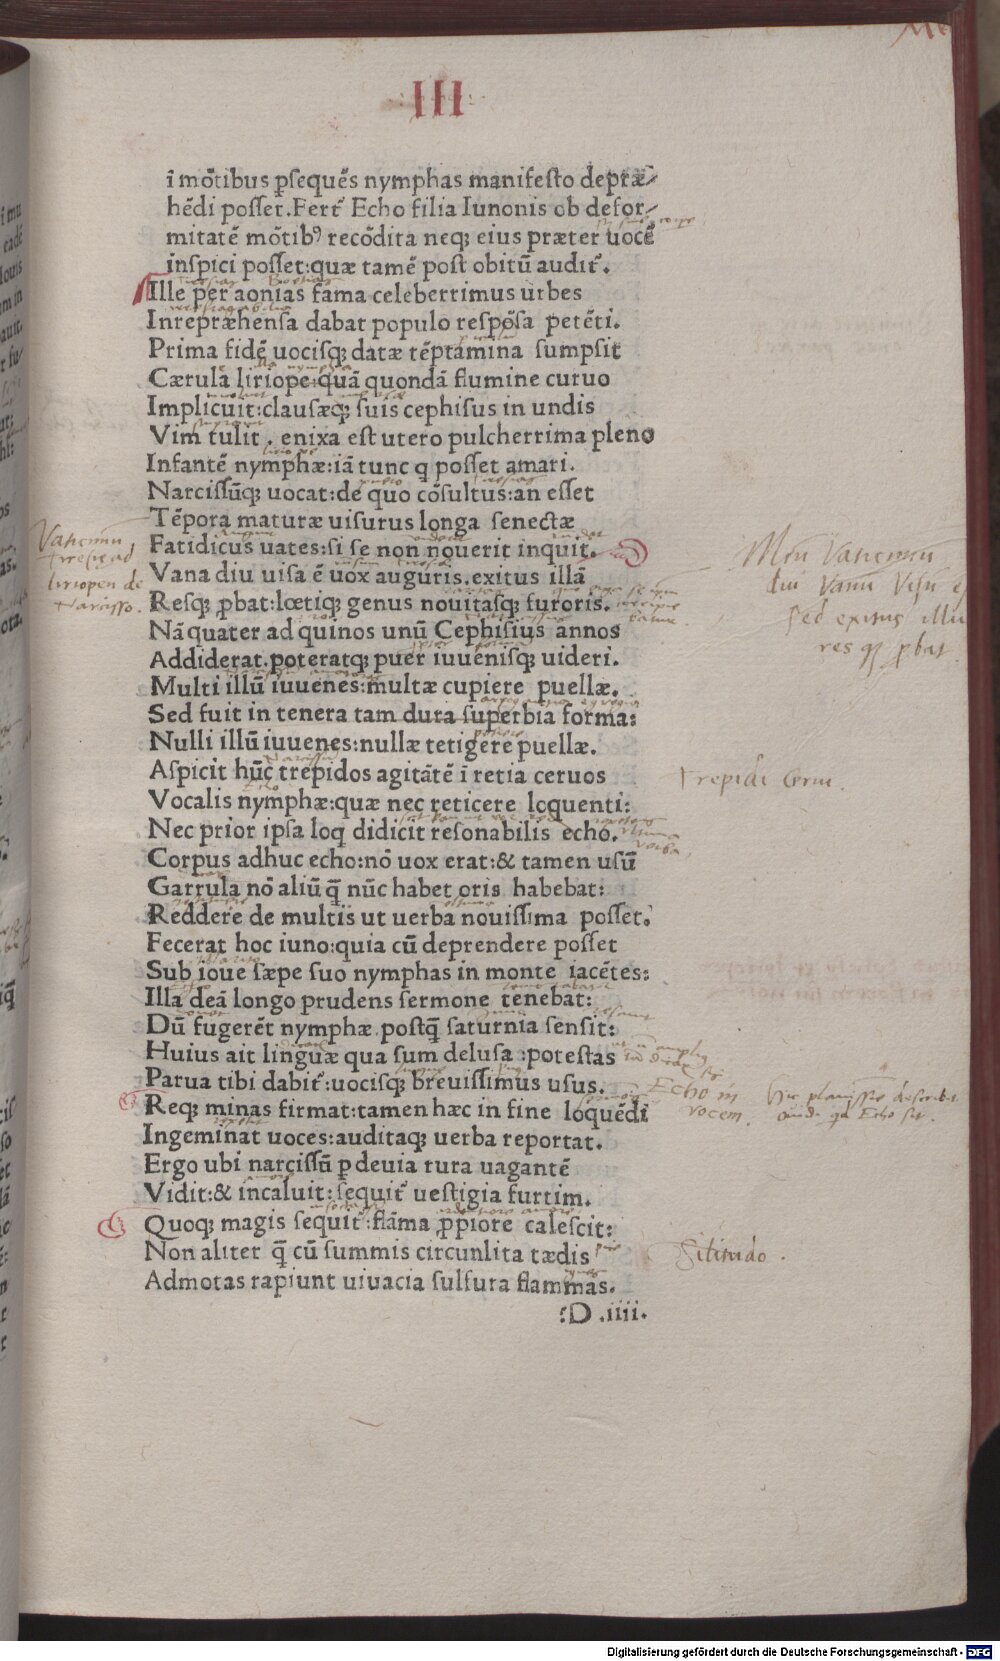 III
ī mōtibus ꝑſequēs nymphas manifeſto depræ/
hēdi poſſet. Fert᷑ Echo filia Iunonis ob defor/
mitatē mōtibꝰ recōdita neqꝫ eius præter uocē
inſpici poſſet: quæ tamē poſt obitū audit᷑.
Ille per aonias fama celeberrimus urbes
Inrepræhenſa dabat populo reſpōſa petēti.
Prima fidē uociſqꝫ datæ tēptamina ſumpſit
Cærula liriope: quā quondā flumine curuo
Implicuit: clauſæqꝫ ſuis cephiſus in undis
Vim tulit. enixa eſt utero pulcherrima pleno
Infantē nymphæ: iā tunc q poſſet amari.
Narciſſūqꝫ uocat: de quo cōſultus: an eſſet
Tēpora maturæ uiſurus longa ſenectæ
Fatidicus uates: ſi ſe non nouerit inquit.
Vana diu uiſa ē uox auguris. exitus illā
Reſqꝫ ꝓbat: lœtiqꝫ genus nouitaſqꝫ furoris.
Nā quater ad quinos unū Cephiſius annos
Addiderat. poteratqꝫ puer iuueniſqꝫ uideri.
Multi illū iuuenes: multæ cupiere puellæ.
Sed fuit in tenera tam dura ſuperbia forma:
Nulli illū iuuenes: nullæ tetigere puellæ.
Aſpicit hūc trepidos agitātē ī retia ceruos
Vocalis nymphæ: quæ nec reticere loquenti:
Nec prior ipſa loq didicit reſonabilis echo.
Corpus adhuc echo: nō uox erat: & tamen uſū
Garrula nō aliū q̄ nūc habet oris habebat:
Reddere de multis ut uerba nouiſſima poſſet.
Fecerat hoc iuno: quia cū deprendere poſſet
Sub ioue ſæpe ſuo nymphas in monte iacētes:
Illa deā longo prudens ſermone tenebat:
Dū fugerēt nymphæ poſtq̄ ſaturnia ſenſit:
Huius ait linguæ qua ſum deluſa: poteſtas
Parua tibi dabit᷑: uociſqꝫ breuiſſimus uſus.
Reqꝫ minas firmat: tamen hæc in fine loquēdi
Ingeminat uoces: auditaqꝫ uerba reportat.
Ergo ubi narciſſū ꝑ deuia rura uagantē
Vidit: & incaluit: ſequit᷑ ueſtigia furtim.
Quoqꝫ magis ſequit᷑: flāma ꝓpiore caleſcit:
Non aliter q̄ cū ſummis circunlita tædis
Admotas rapiunt uiuacia ſulfura flammas.
D .iiii.
liriopen de
Narcisso.
diu Vanū Visū
sed exitus illū
res qꝫ ꝓbat
trepidi cerui.
Echo in
vocem.
Digitalisierung gefördert durch die Deutsche Forschungsgemeinschaft - DFG